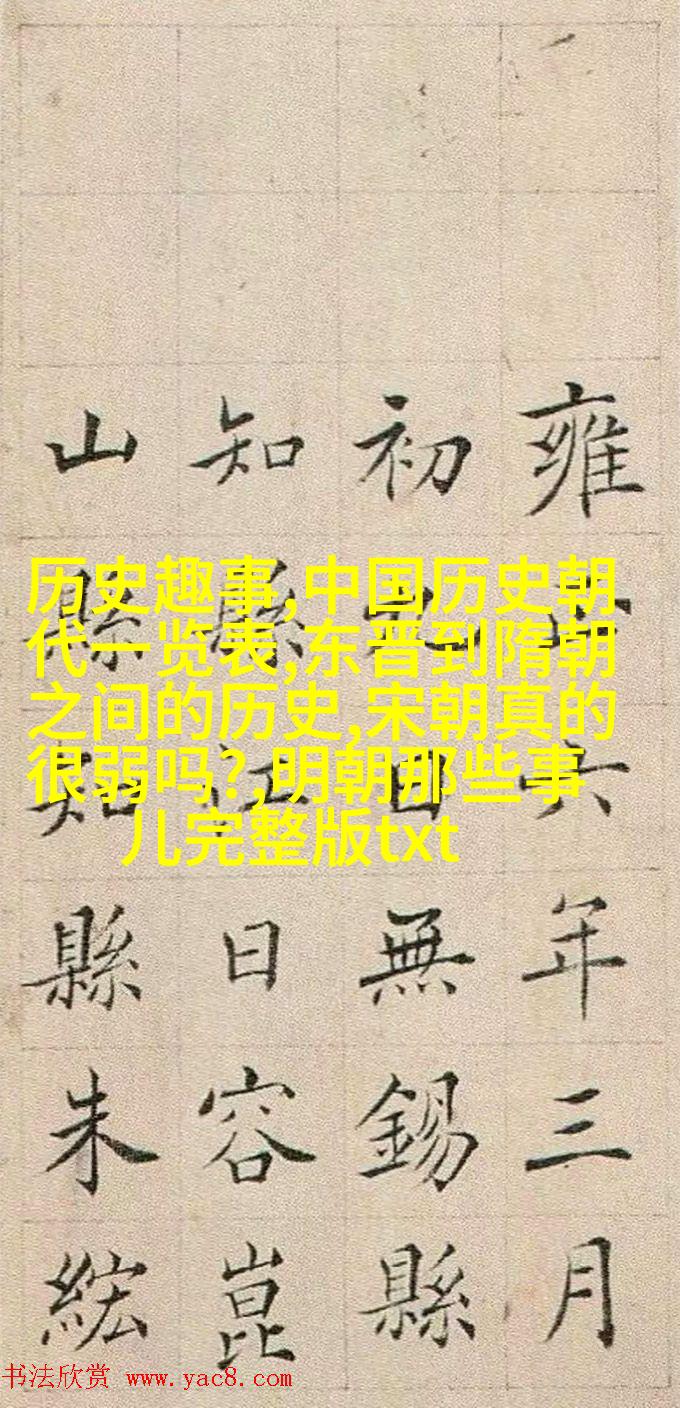 雍正六年三月
初日無錫縣
知縣江日容崑
山縣知縣朱紘
历史趣事,中国历史朝
代一览表,东晋到隋朝
之间的历史,宋朝真的
很弱吗?,明朝那些事
儿完整版txt
书法欣赏 www.yac8.com